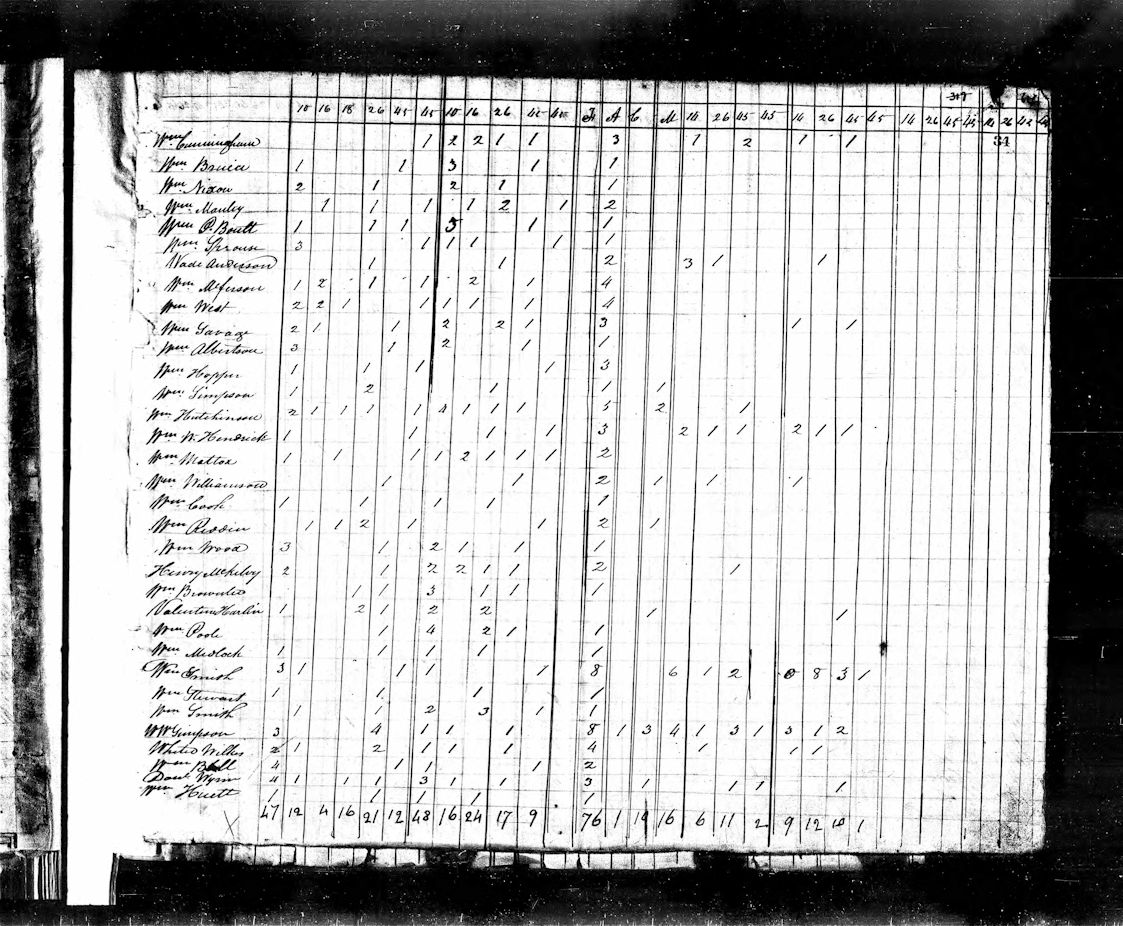 317
10 16 18 26 45 45 10 16 26 45 45 F A C M 14 26 45 45 14 26 45 45 14 26 45 45 14 26 45
34
Wm Cunningham 1 2 2 1 1 3 1 2 1 1
Wm 1 1 3 1 1
Wm Nixon 2 1 2 1 1
Wm Manley 1 1 1 1 2 1 2
Wm P. 1 1 1 5 1 1
Wm Sprouse 3 1 1 1 1 1
Wade Anderson 1 1 2 3 1 1
Wm McFerson 1 2 1 1 2 1 4
Wm West 2 2 1 1 1 1 1 4
Wm Savage 2 1 1 2 2 1 3 1 1
Wm Albertson 3 1 2 1 1
Wm Hopper 1 1 1 1 3
Wm Simpson 1 2 1 1 1
Wm Hutchinson 2 1 1 1 1 4 1 1 1 5 2 1
Wm W. Hendrick 1 1 1 1 3 2 1 1 2 1 1
Wm Mattox 1 1 1 1 2 1 1 1 2
Wm Williamson 1 1 2 1 1 1
Wm Cook 1 1 1 1 1
Wm 1 1 2 1 1 2 1
Wm Wood 3 1 2 1 1 1
Henry McKelvy 2 1 2 2 1 1 2 1
Wm Brownlee 1 1 3 1 1 1
Valentine Harlin 1 2 1 2 2 1 1
Wm Poole 1 4 2 1 1
Wm Medlock 1 1 1 1 1
Wm Smith 3 1 1 1 1 8 6 1 2 8 3 1
Wm Stewart 1 1 1 1
Wm Smith 1 1 2 3 1 1
W W Simpson 3 4 1 1 1 8 1 3 4 1 3 1 3 1 2
White Wilkes 2 1 2 1 1 1 4 1 1 1
Wm Bell 4 1 1 1 2
Danl Wynn 4 1 1 1 3 1 1 3 1 1 1 1
Wm Huett 1 1 1 1 1
X 47 12 4 16 21 12 48 16 24 17 9 76 1 19 16 6 11 2 9 12 10 1